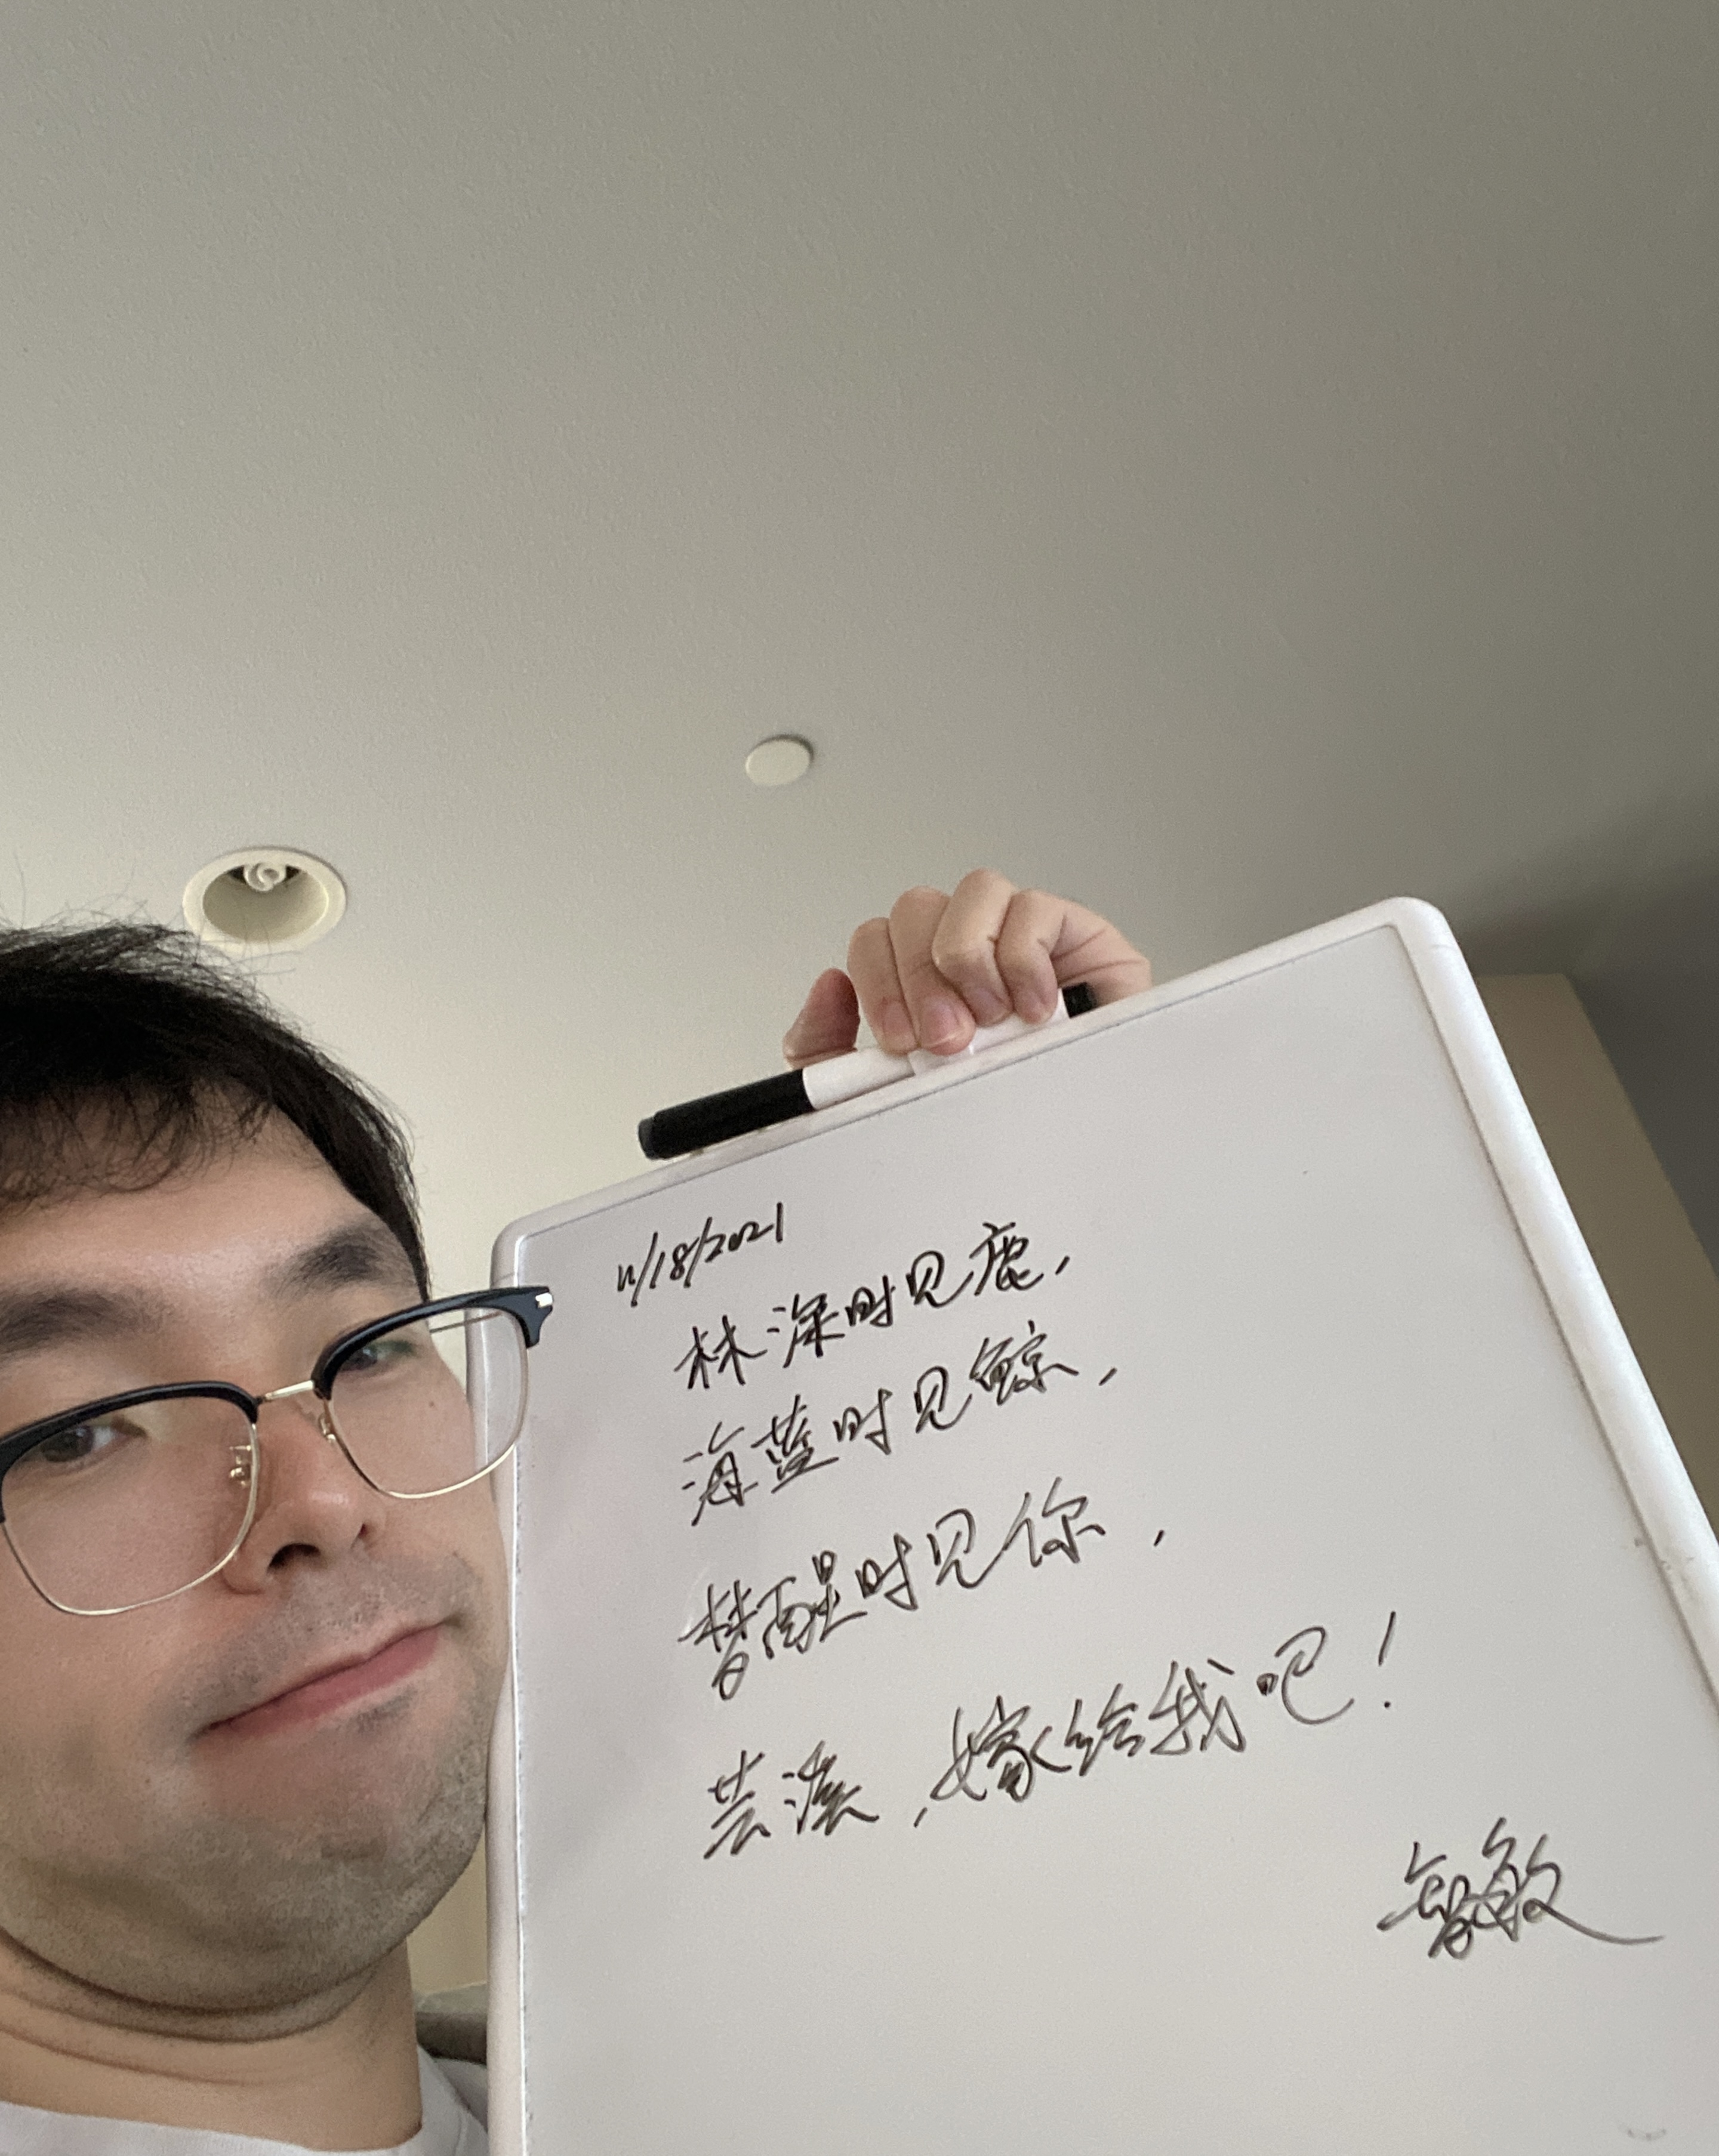 11/18/2021
林深时见鹿,
海蓝时见鲸,
梦醒时见你,
芸溪,嫁给我吧!
智敏